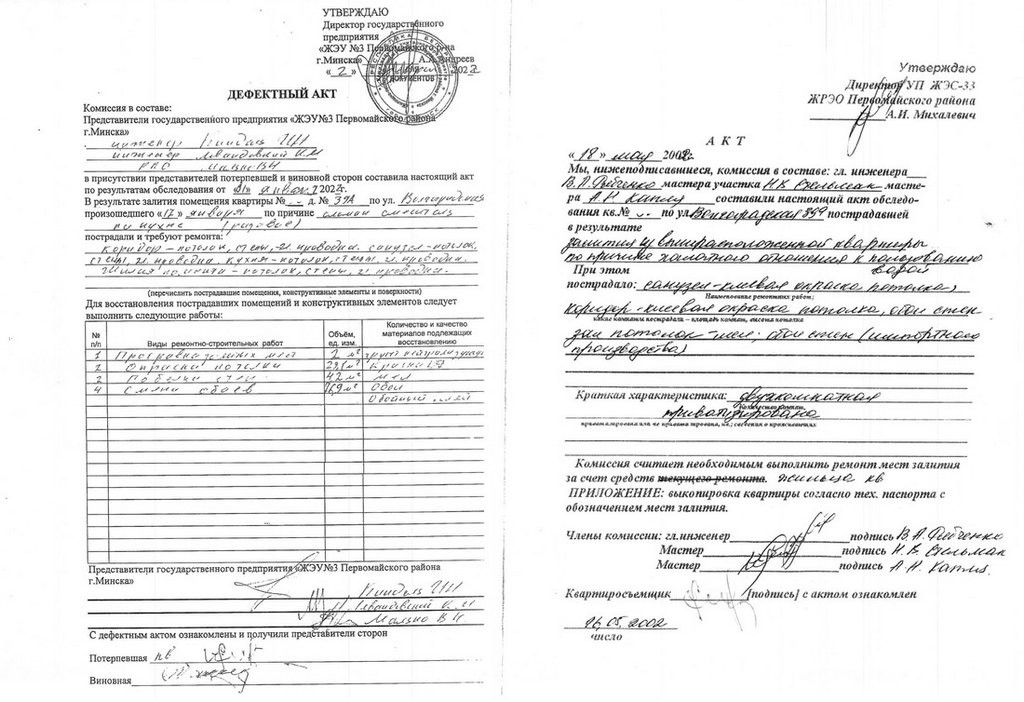 УТВЕРЖДАЮ
Директор государственного
предприятия
«ЖЭУ №3 Первомайского р-на
г.Минска» А.А.Андреев
«2» 2022
ДОКУМЕНТОВ
ДЕФЕКТНЫЙ АКТ
Комиссия в составе:
Представители государственного предприятия «ЖЭУ№3 Первомайского района
г.Минска»
инженер
инженер Левандовский
в присутствии представителей потерпевшей и виновной сторон составила настоящий акт
по результатам обследования от «31» января 2022г.
В результате залития помещения квартиры № д. № 39А по ул. Волгоградская
произошедшего «17» января по причине сломан смеситель
на кухне
пострадали и требуют ремонта:
коридор – потолок, стены, эл. проводка. санузел – потолок,
стены, эл. проводка. кухня – потолок, стены, эл. проводка.
жилая комната – потолок, стены, эл. проводка.
(перечислить пострадавшие помещения, конструктивные элементы и поверхности)
Для восстановления пострадавших помещений и конструктивных элементов следует
выполнить следующие работы:
№ п/п Виды ремонтно-строительных работ Объём, ед. изм. Количество и качество материалов подлежащих восстановлению
1 мест 2 м²
2 Окраска потолка краска
3 Побелка 42 м² мел
4 Смена обоев 76,9 м² Обои
Обойный клей
Представители государственного предприятия «ЖЭУ№3 Первомайского района
г.Минска»
Левандовский
С дефектным актом ознакомлены и получили представители сторон
Потерпевшая кв
Виновная
Утверждаю
Директор УП ЖЭС-33
ЖРЭО Первомайского района
А.И. Михалевич
А К Т
«18» мая 2002г.
Мы, нижеподписавшиеся, комиссия в составе: гл. инженера
В.А. мастера участка Н.В. Вильман масте-
ра А.Н. составили настоящий акт обследо-
вания кв.№ по ул Волгоградская 39А пострадавшей
в результате
залития из вышерасположенной квартиры
по причине халатного отношения к пользованию
водой
При этом
пострадало: санузел - клеевая окраска потолка,
Наименование ремонтных работ;
коридор - клеевая окраска потолка, обои стен
какие комнаты пострадали – площадь комнат, высота потолка
зал потолок - мел; обои стен (импортного
производства)
Краткая характеристика: двухкомнатная
Количество комнат,
приватизирована
приватизирована или не приватизирована, кв.; сведения о проживающих
Комиссия считает необходимым выполнить ремонт мест залития
за счет средств текущего ремонта. жильца кв
ПРИЛОЖЕНИЕ: выкопировка квартиры согласно тех. паспорта с
обозначением мест залития.
Члены комиссии: гл.инженер подпись В.А.
Мастер подпись Н.В. Вильман
Мастер подпись А.Н.
Квартиросъемщик [подпись] с актом ознакомлен
26.05.2002
число